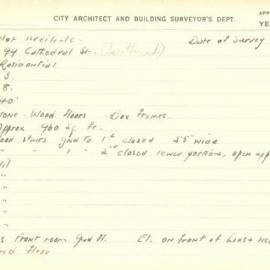 CITY ARCHITECT AND BUILDING SURVEYOR'S DEPT.
APP
YE
Not available Date of survey
99 Cathedral St.
Residential
3.
8.
40'
Stone - Wood Floors - Box Frames.
Approx 960 sq. ft.
Wood stairs grd to 1st closed 2'5" wide
" " 1st " 2nd closed lower portion, open upp
Nil
"
"
"
"
Front room Grd Fl. El. on front of house
2nd Floor